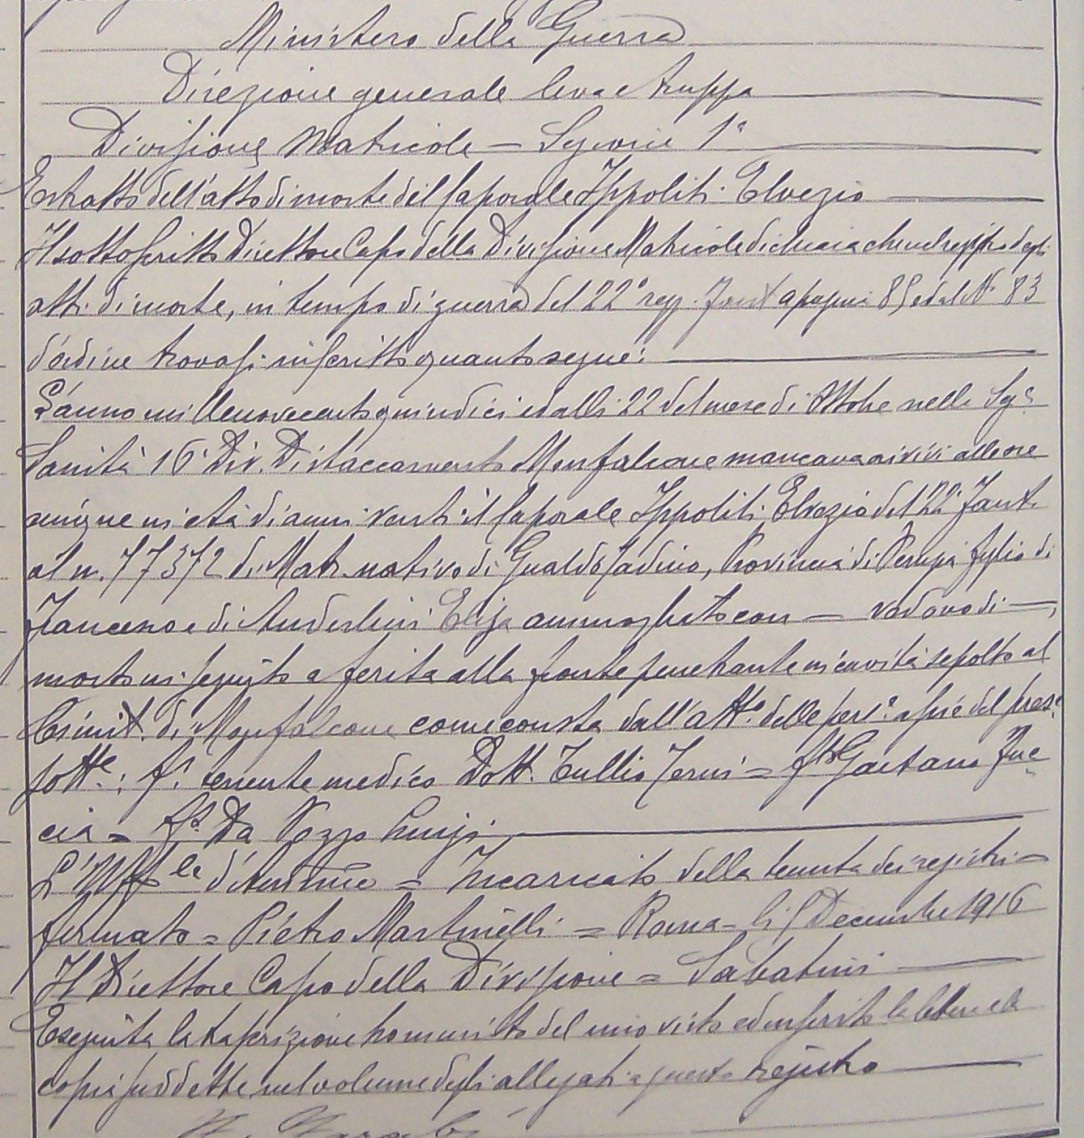 Ministero della Guerra
Direzione generale leva e truppa
Divisione Matricole – Sezione 1ª
Estratto dell'atto di morte del Caporale Ippoliti Elvezio
Il sottoscritto Direttore Capo della Divisione Matricole dichiara che nel registro degli
atti di morte, in tempo di guerra del 22° regg. Fant. a pagina 85 ed al N° 83
d'ordine trovasi inscritto quanto segue:
L'anno millenovecentoquindici ed alli 22 del mese di Ottobre nella Sezᵉ
Sanità 16ª Div. Distaccamento Monfalcone mancava ai vivi alle ore
cinque in età di anni venti il Caporale Ippoliti Elvezio del 22° Fant.
al n. 77372 di Matr. nativo di Gualdo Tadino, Provincia di Perugia figlio di
Francesco e di Anderlini Elisa ammogliato con — vedovo di —,
morto in seguito a ferita alla fronte penetrante in cavità sepolto al
Cimit. di Monfalcone come consta dall'attᵉ delle persᵉ a piè del presᵉ
sottᵉ: fᵒ tenente medico Dott. Tullio Terni = fᵒ Gaetano
= fᵒ Da Pozzo Luigi
L'Uffˡᵉ d'Ammne = Incaricato della tenuta dei registri =
firmato = Pietro Martinelli = Roma = li 5 Decembre 1916
Il Direttore Capo della Divisione = Sabatini
Eseguita la trascrizione ho munito del mio visto ed inserito la lettera e la
copia suddette nel volume degli allegati a questo registro